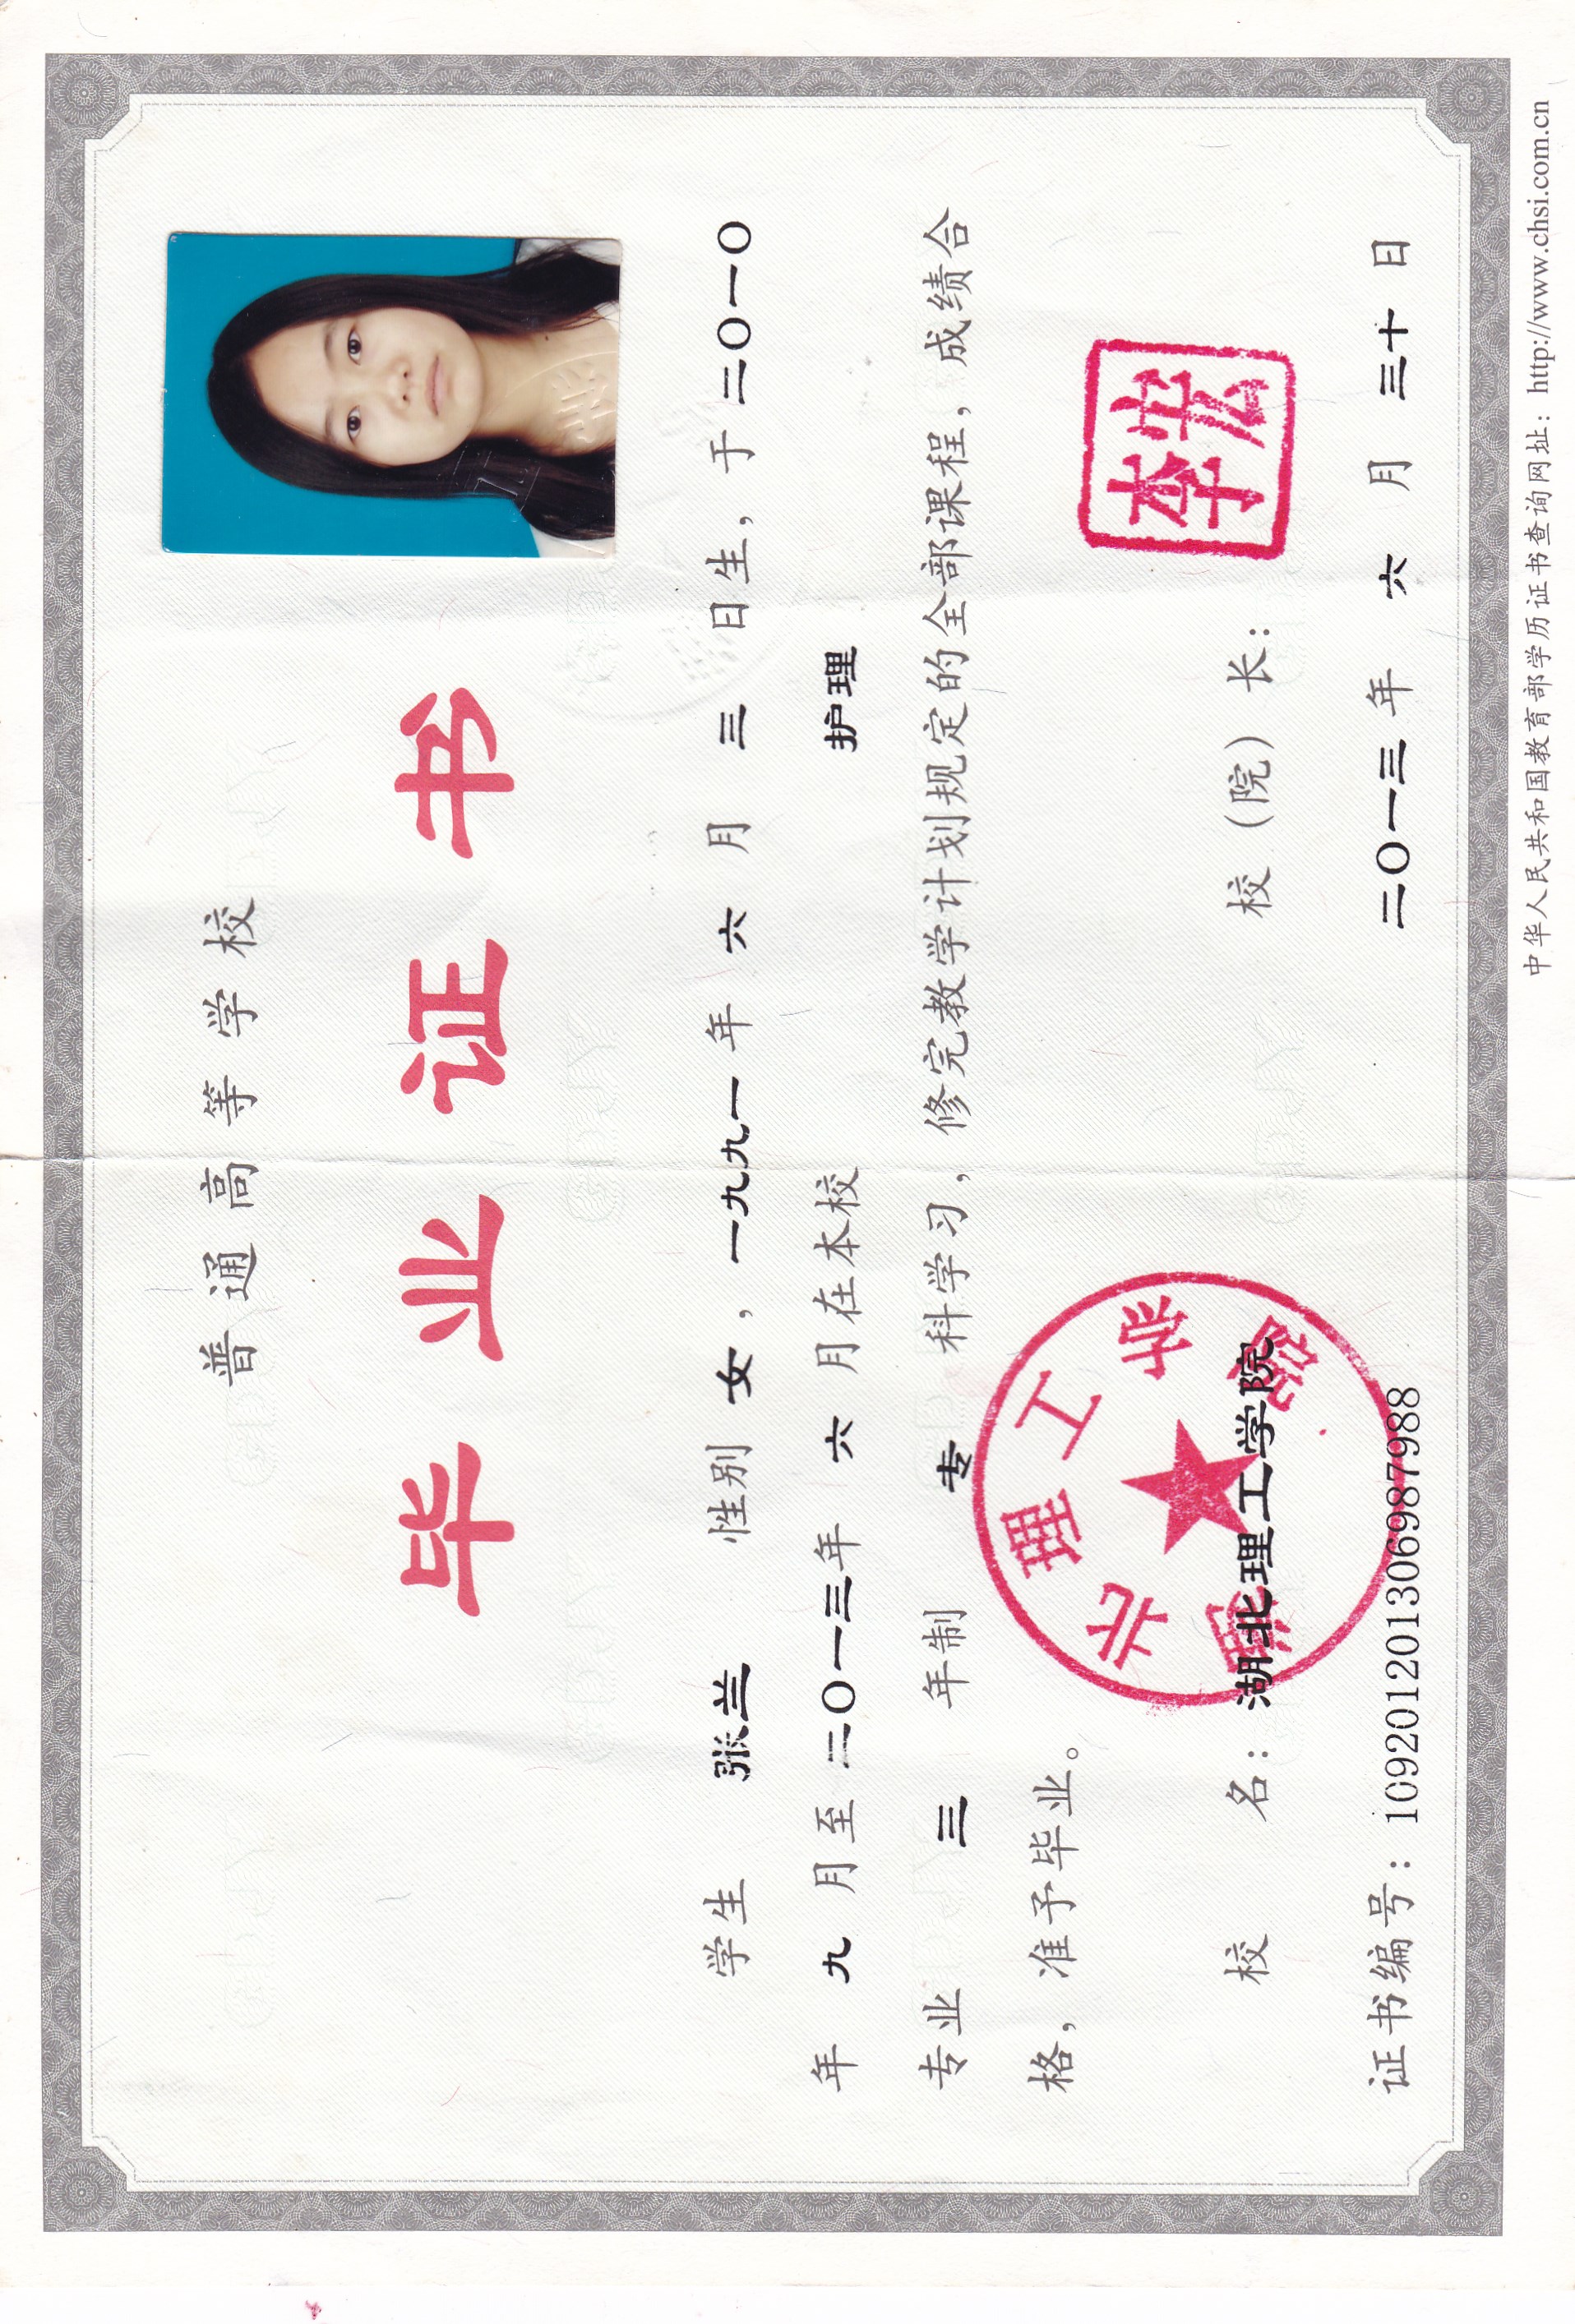 普通高等学校
毕业证书
学生 张兰 性别 女，一九九一年 六 月 三 日生，于二〇一〇
年 九 月至二〇一三年 六 月在本校 护理
专业 三 年制 专 科学习，修完教学计划规定的全部课程，成绩合
格，准予毕业。
校 名：湖北理工学院
湖北理工学院
校（院）长：
李宏
证书编号：109201201306987988
二〇一三年 六 月 三十 日
中华人民共和国教育部学历证书查询网址：http://www.chsi.com.cn